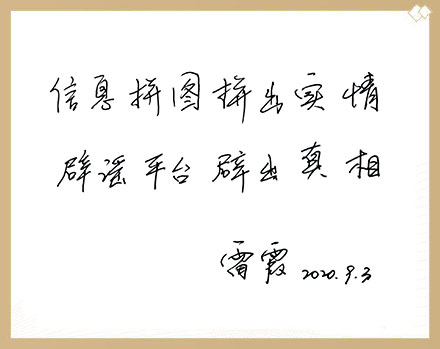 信息拼图拼出实情
辟谣平台辟出真相
雷霞 2020.9.3